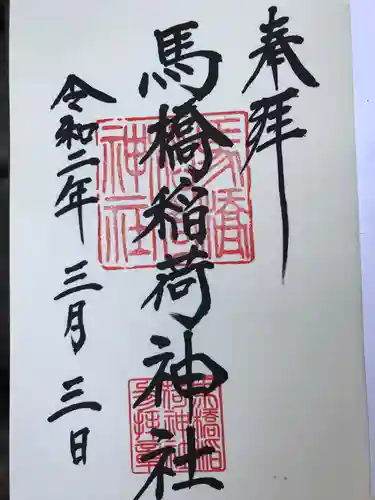 奉拝
馬橋稲荷神社
令和二年 三月 三日
馬橋稲荷神社
馬橋稲荷神社参拝章